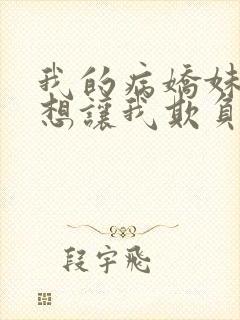 我的病嬌妹
想讓我欺負
段宇飛